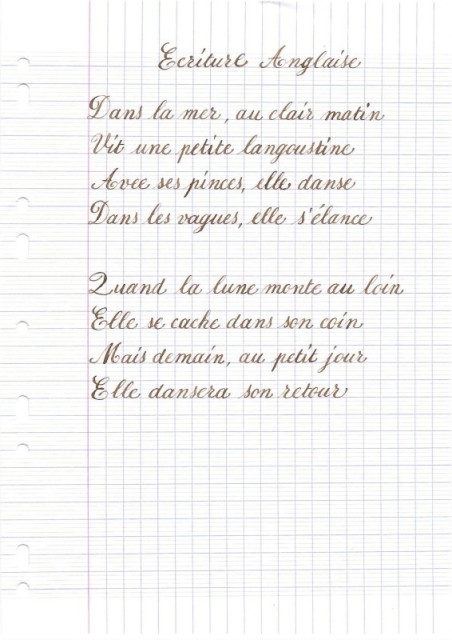 Ecriture Anglaise
Dans la mer, au clair matin
Vit une petite langoustine
Avec ses pinces, elle danse
Dans les vagues, elle s'élance
Quand la lune monte au loin
Elle se cache dans son coin
Mais demain, au petit jour
Elle dansera son retour